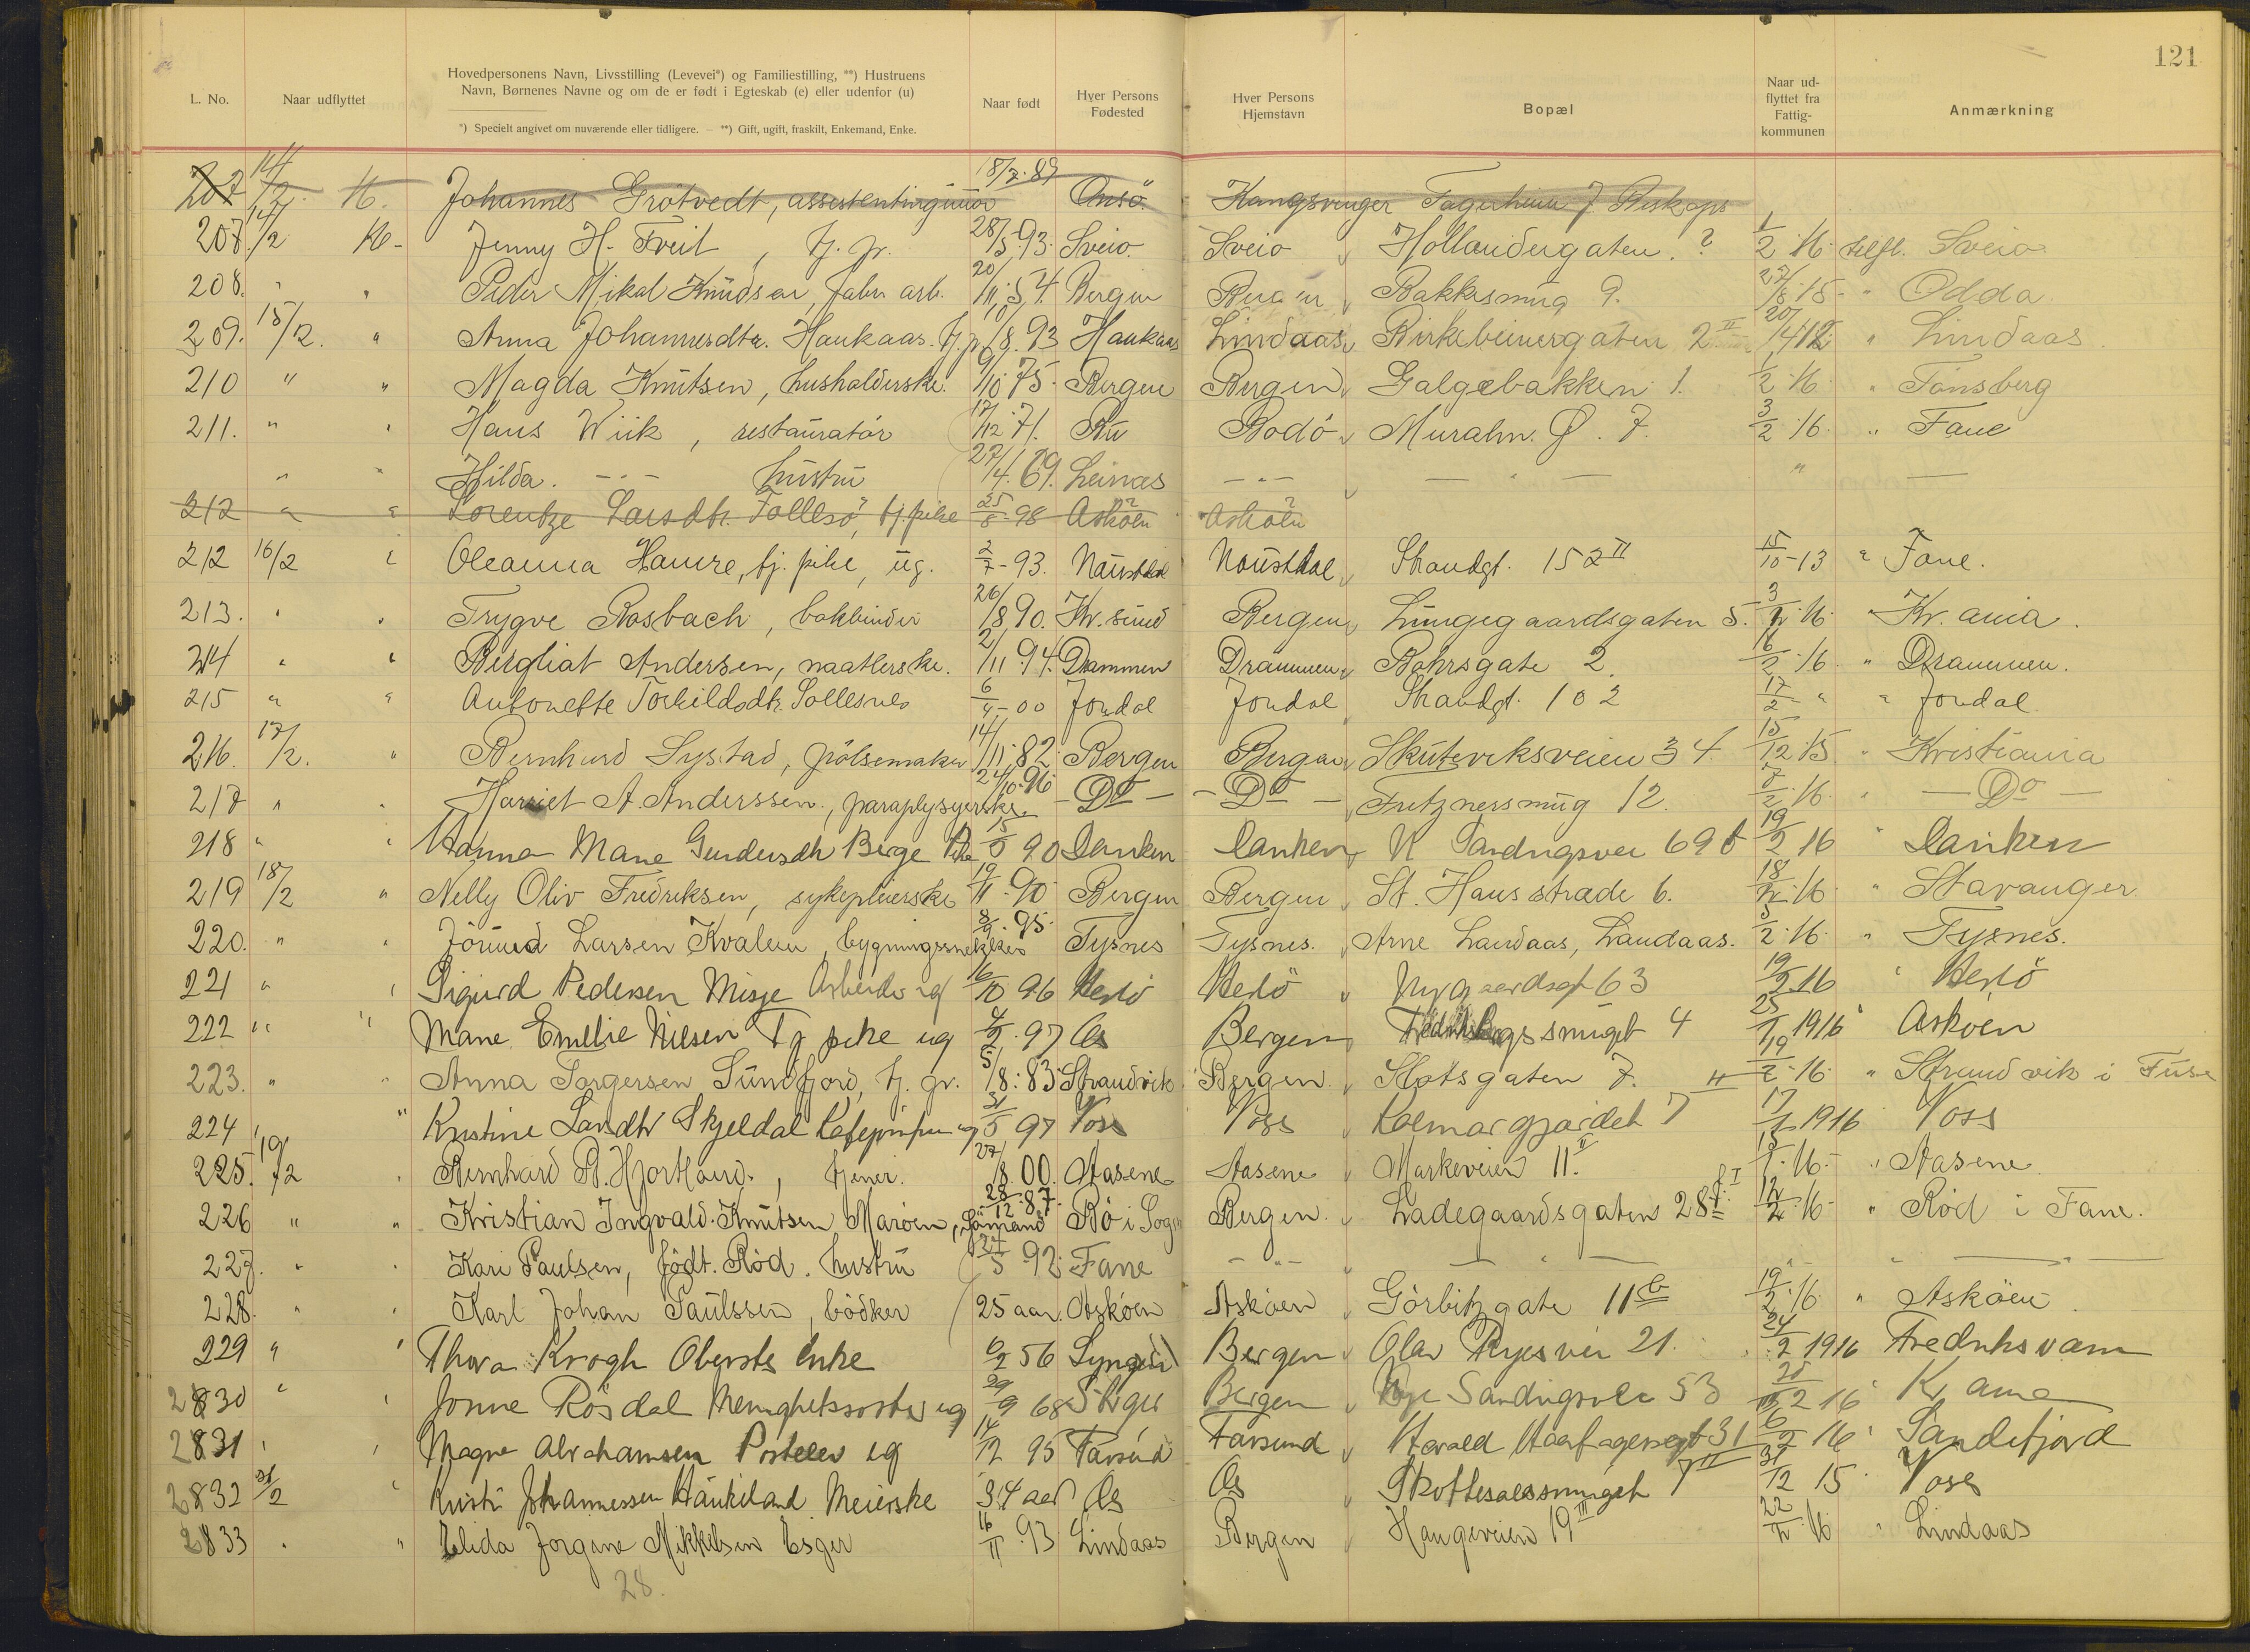 121
L. No. Naar udflyttet Hovedpersonens Navn, Livsstilling (Levevei*) og Familiestilling, **) Hustruens Navn, Børnenes Navne og om de er født i Egteskab (e) eller udenfor (u) Naar født Hver Persons Fødested Hver Persons Hjemstavn Bopæl Naar ud-flyttet fra Fattig-kommunen Anmærkning
*) Specielt angivet om nuværende eller tidligere. — **) Gift, ugift, fraskilt, Enkemand, Enke.
207 14/2 16. Johannes Grötvedt, 18/7. 89 Onsö. Kongsvinger
207. 14/2 16- Jenny H. Tveit, tj. pr. 28/5 93. Sveio. Sveio Hollandergaten. ? 1/2 16. selfl. Sveio
208. " " Peder Mikal Knudsen, fabr. arb. 20/11. 54. Bergen Bergen Bakkesmug 9. 27/8. 15. " Odda.
209. 15/2. " Anna Johannesdtr. Haukaas. tj. p. 10/8. 93 Haukaas Lindaas Birkebeinergaten 2 II 20/4 12. " Lindaas
210 " " Magda Knutsen, husholderske. 9/10. 75. Bergen Bergen Galgebakken 1. 1/2 16. " Tönsberg
211. " " Hans Wiik, restauratör 17/12. 71. Bodö Muralm. Ø. 7. 3/2 16. " Fane
" " Hilda. -"- hustru 27/4. 69. Leinæs -"- - " - " -
212 " " Lorentze Larsdtr. Follesö, tj. pike 25/8 - 98 Asköen Asköen
212 16/2 " Oleanna Hamre, tj. pike, ug. 2/7 - 93. Naustdal Naustdal Strandgt. 152 II 15/10 - 13 " Fane.
213. " " Trygve Rosbach, bokbinder 26/8 90. Kr. sund Bergen Lungegaardsgaten 5. 3/2. 16. " Kr. ania.
214 " " Bergliot Andersen, naatlerske. 2/11. 94. Dammen Drammen Bøhrsgate 2. 16/2. 16. " Drammen.
215 " " Antonette Torkildsdtr. Sollesnes 6/4 - 00 Jondal Jondal Strandgt. 102 17/2 - " " Jondal.
216. 17/2. " Bernhard Systad, pölsemaker 14/11. 82. Bergen Bergen Skuteviksveien 34. 15/12 15 " Kristiania
217 " " Harriet A. Anderssen., paraplysyerske. 24/10. 96 - Do - - Do - Fritznersmug 12. 7/2. 16. " - Do -
218 " " Hanna Marie Gundersdtr Berge 15/5 90 Danken Danken N Sandvigsvei 69 b 19/2 16 " Danken
219 18/2 " Nelly Oliv Fredriksen, sykepleierske 19/11. 90 Bergen Bergen St. Hans stræde 6. 18/2 16. " Stavanger
220. " " Jörund Larsen Kvalem, bygningssnekker 95. Tysnes Tysnes. Arne Landaas, Landaas. 5/2. 16. " Tysnes.
221 " " Sigurd Pedersen Misje Arbeider ug 16/10 96 Herlö Herlö Nygaardsgt 63 19/2 16 " Herlö
222 " " Marie Emilie Nilsen Tj pike ug 4/2. 97 Os Bergen smuget 4 25/1 1916 " Asköen
223. " " Anna Torgersen Sundfjord, tj. pr. 5/8. 83. Strandvik Bergen. Slotsgaten 7. II 19/2. 16. " Strandvik i Fuse
224 " " Kristine Larsdtr Skjeldal ug 31/5 97 Voss Voss Kalmargjærdet 7 17/1 1916 Voss
225. 19/2 " Bernhard B. Hjortland., tjener. 27/8. 00. Aasene Aasene Markeveien 11. II 15/1. 16. " Aasene
226 " " Kristian Ingvald Knutsen Maröen, Sömand 28/12. 87. Bö i Sogn Bergen. Ladegaardsgaten 28 I 12/2. 16. " Röd i Fane.
227. " " Kari Paulsen, födt. Röd. hustru 27/5 92. Fane -"- - " - " - " -
228. " " Karl Johan Paulssen, bödker 25 aar. Asköen Asköen Görbitzgate 11 b 19/2. 16. " Asköen.
229 " " Thora Krogh Obersts Enke 6/2 56 Lyngen Bergen Olav Ryes vei 21. 24/2 1916 Fredriksvarn
2830 " " Jonne Rösdal Menighetssöster ug 29/9 68 Bergen Nye Sandvigsvei 53 25/2 16 " Kr ania
2831 " " Magne Abrahamsen Postelev ug 14/12 95 Farsund Farsund Harald Haarfagersgt 31 II 6/2 16 " Sandefjord
2832 21/2 " Kristi Johannessen Haukeland Meierske 34 aar Os Os Skottesalssmuget 7 II 31/12 15 " Voss
2833 " " Elida Jorgine Mikkelsen Esger 16/11. 93 Lindaas Bergen Haugeveien 19 III 22/2. 16 " Lindaas
28.